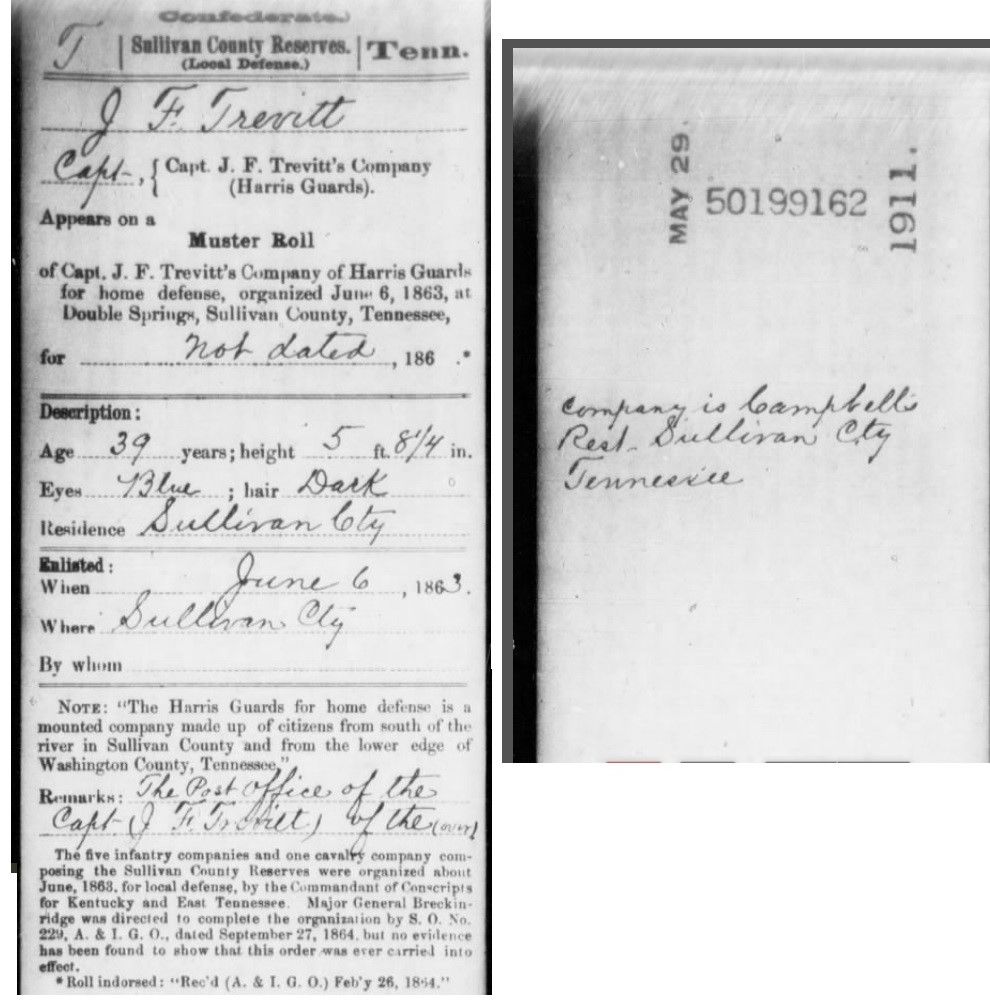 Confederate.
T | Sullivan County Reserves. (Local Defense.) | Tenn.
J F. Trevitt
Capt-, { Capt. J. F. Trevitt's Company
(Harris Guards).
Appears on a
Muster Roll
of Capt. J. F. Trevitt's Company of Harris Guards
for home defense, organized June 6, 1863, at
Double Springs, Sullivan County, Tennessee,
for not dated, 186 .*
Description:
Age 39 years; height 5 ft. 8 1/4 in.
Eyes Blue ; hair Dark
Residence Sullivan Cty
Enlisted:
When June 6, 1863.
Where Sullivan Cty
By whom
NOTE: "The Harris Guards for home defense is a
mounted company made up of citizens from south of the
river in Sullivan County and from the lower edge of
Washington County, Tennessee."
Remarks: The Post office of the
Capt (J F. Trevitt) of the (over)
The five infantry companies and one cavalry company com-
posing the Sullivan County Reserves were organized about
June, 1863, for local defense, by the Commandant of Conscripts
for Kentucky and East Tennessee. Major General Breckin-
ridge was directed to complete the organization by S. O. No.
229, A. & I. G. O., dated September 27, 1864, but no evidence
has been found to show that this order was ever carried into
effect.
*Roll indorsed: "Rec'd (A. & I. G. O.) Feb'y 26, 1864."
MAY 29.
50199162
1911.
company is Campbell's
Rest- Sullivan Cty
Tennessee